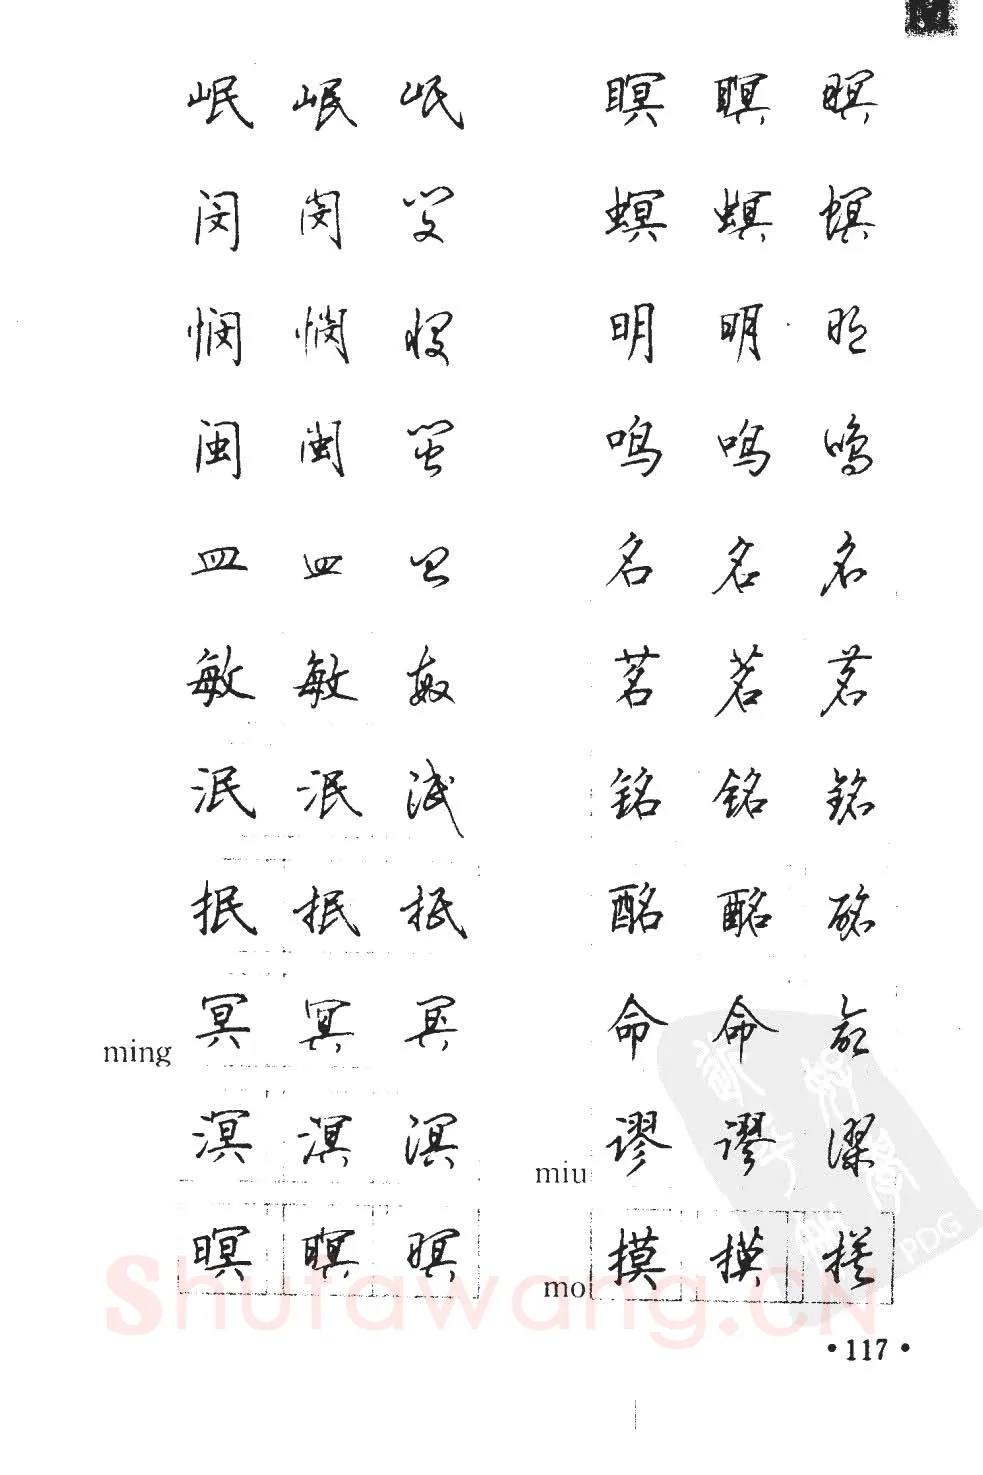 M
岷 岷 岷
闵 闵 闵
悯 悯 悯
闽 闽 闽
皿 皿 皿
敏 敏 敏
泯 泯 泯
抿 抿 抿
ming 冥 冥 冥
溟 溟 溟
暝 暝 暝
瞑 瞑 瞑
螟 螟 螟
明 明 明
鸣 鸣 鸣
名 名 名
茗 茗 茗
铭 铭 铭
酩 酩 酩
命 命 命
miu 谬 谬 谬
mo 摸 摸 摸
PDG
Shufawang.CN
·117·